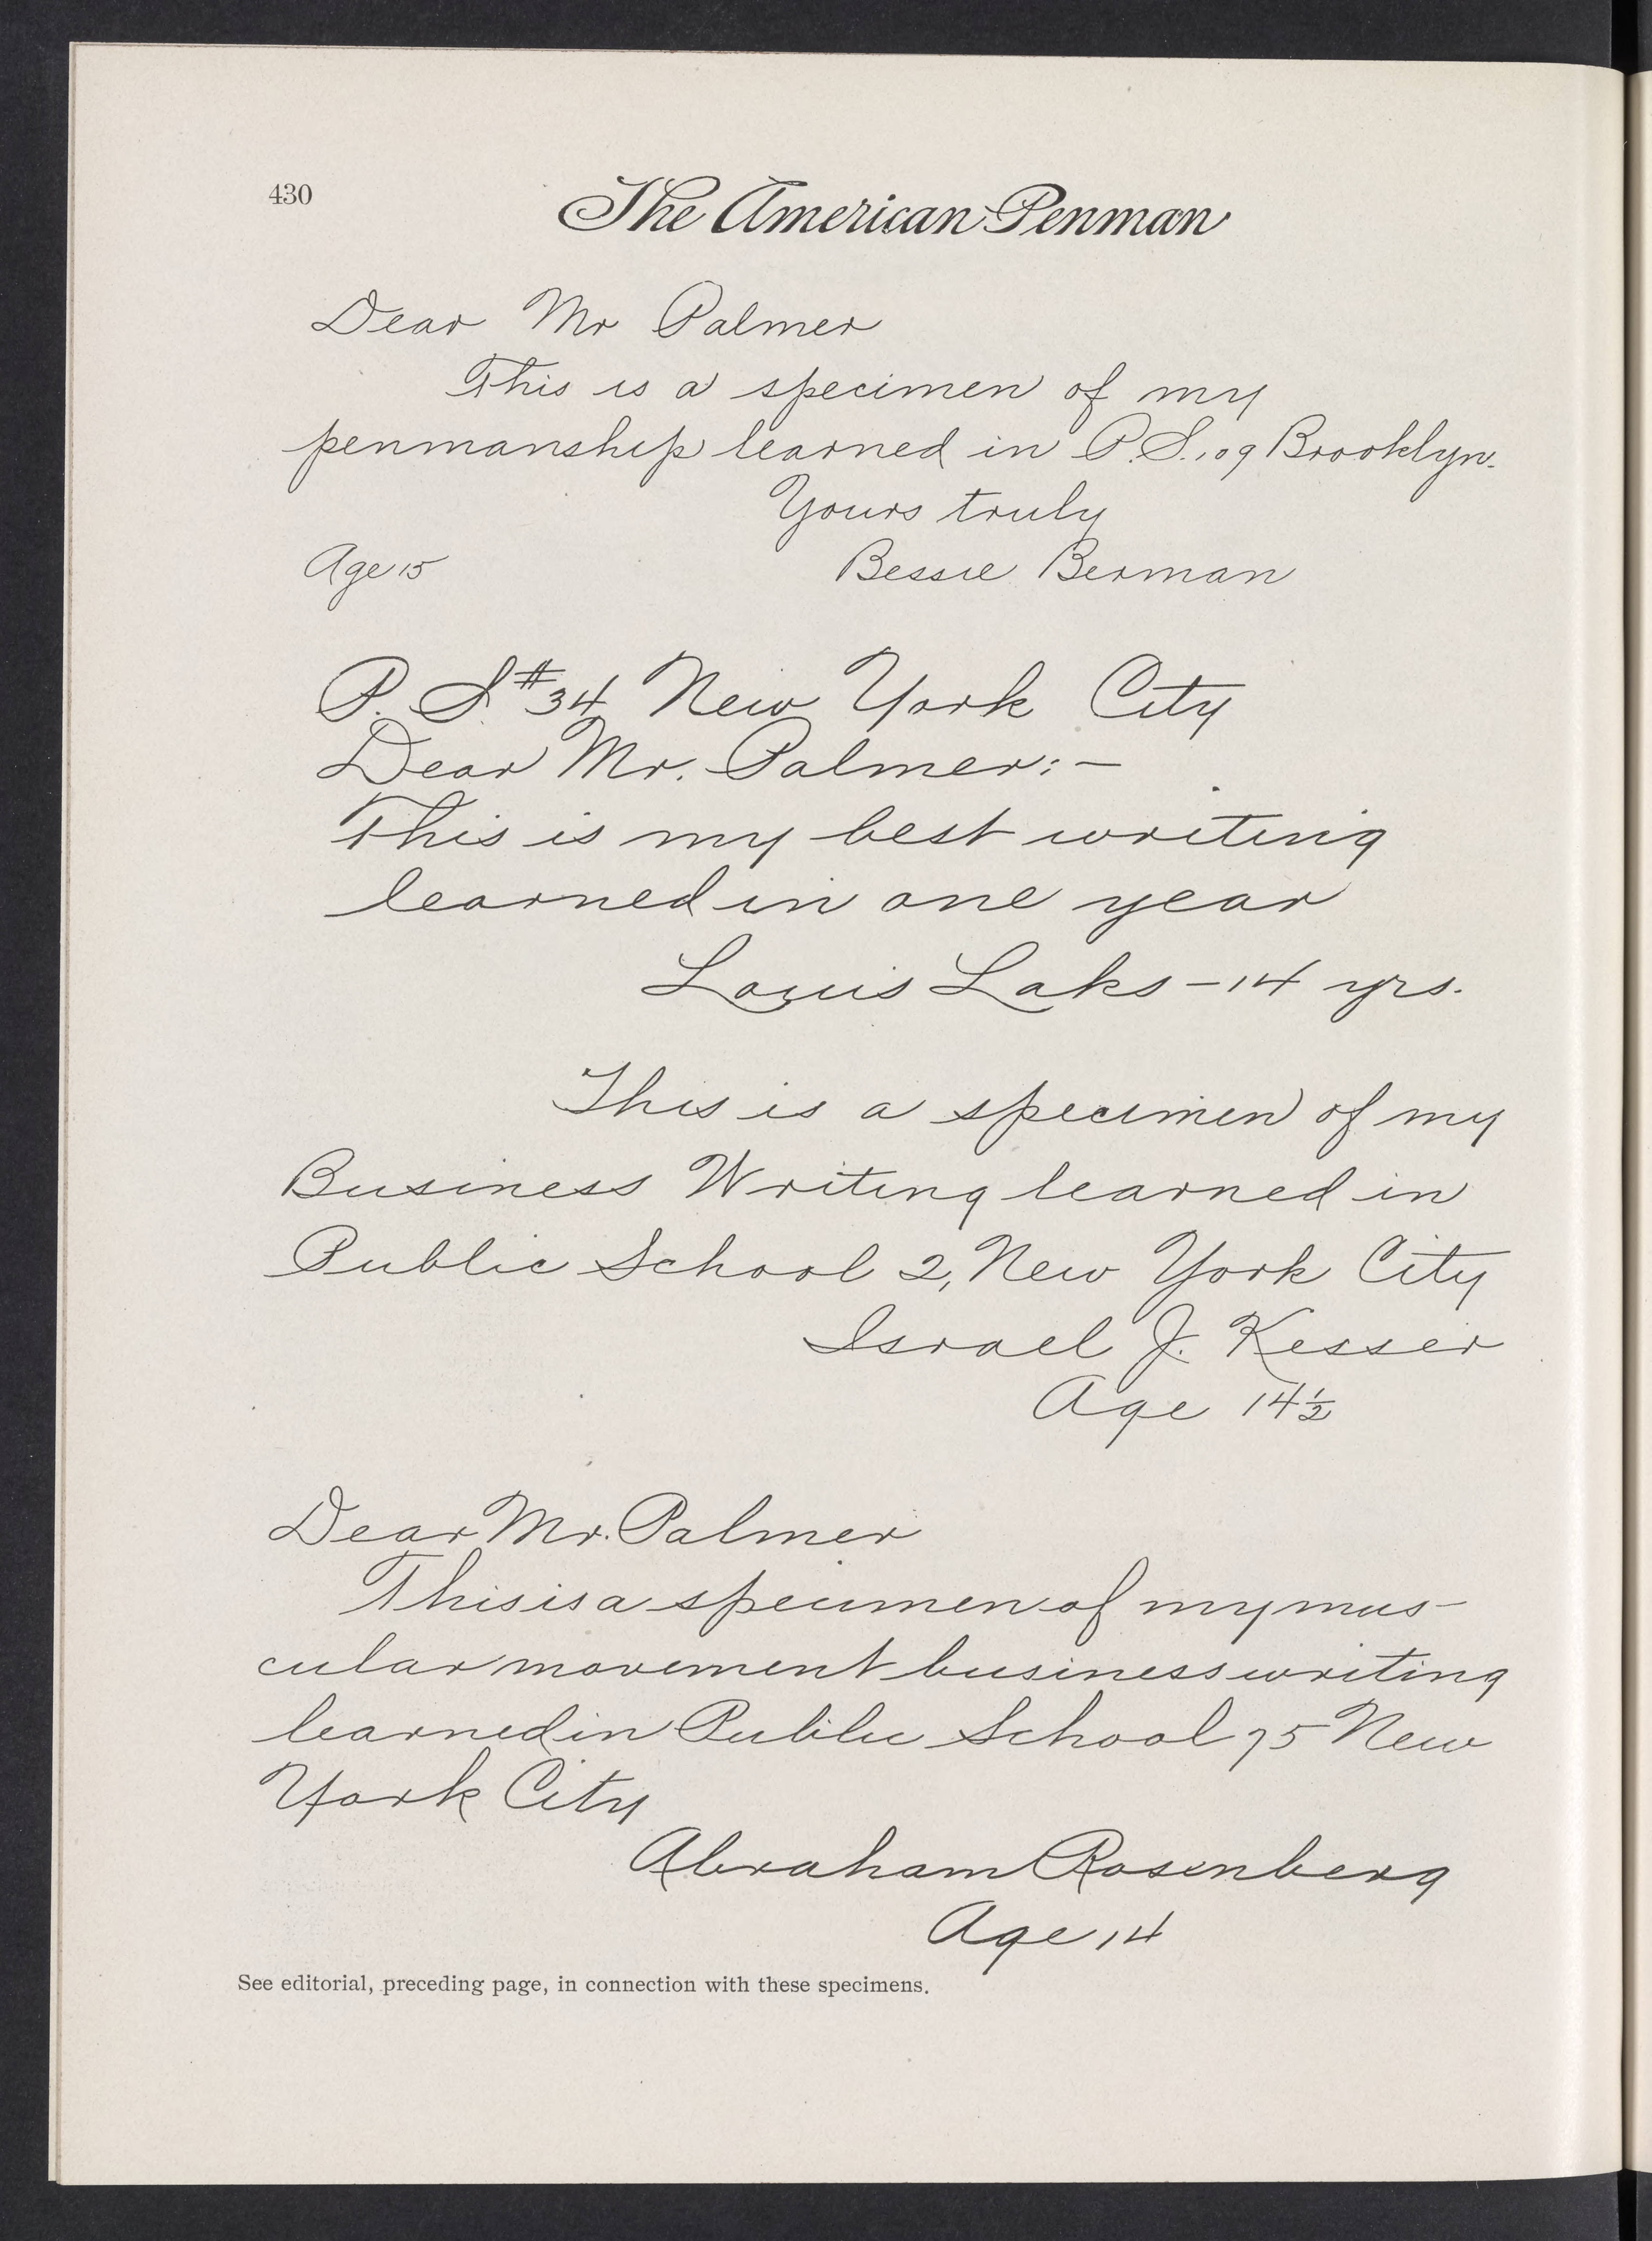 430
The American Penman
Dear Mr Palmer
This is a specimen of my
penmanship learned in P.S. 109 Brooklyn.
Yours truly
Age 15 Bessie Berman
P. S. #34 New York City
Dear Mr. Palmer:-
This is my best writing
learned in one year
Louis Laks - 14 yrs.
This is a specimen of my
Business Writing learned in
Public School 2, New York City
Israel J. Kesser
Age 14½
Dear Mr. Palmer
This is a specimen of my mus-
cular movement business writing
learned in Public School 75 New
York City
Abraham Rosenberg
Age 14
See editorial, preceding page, in connection with these specimens.